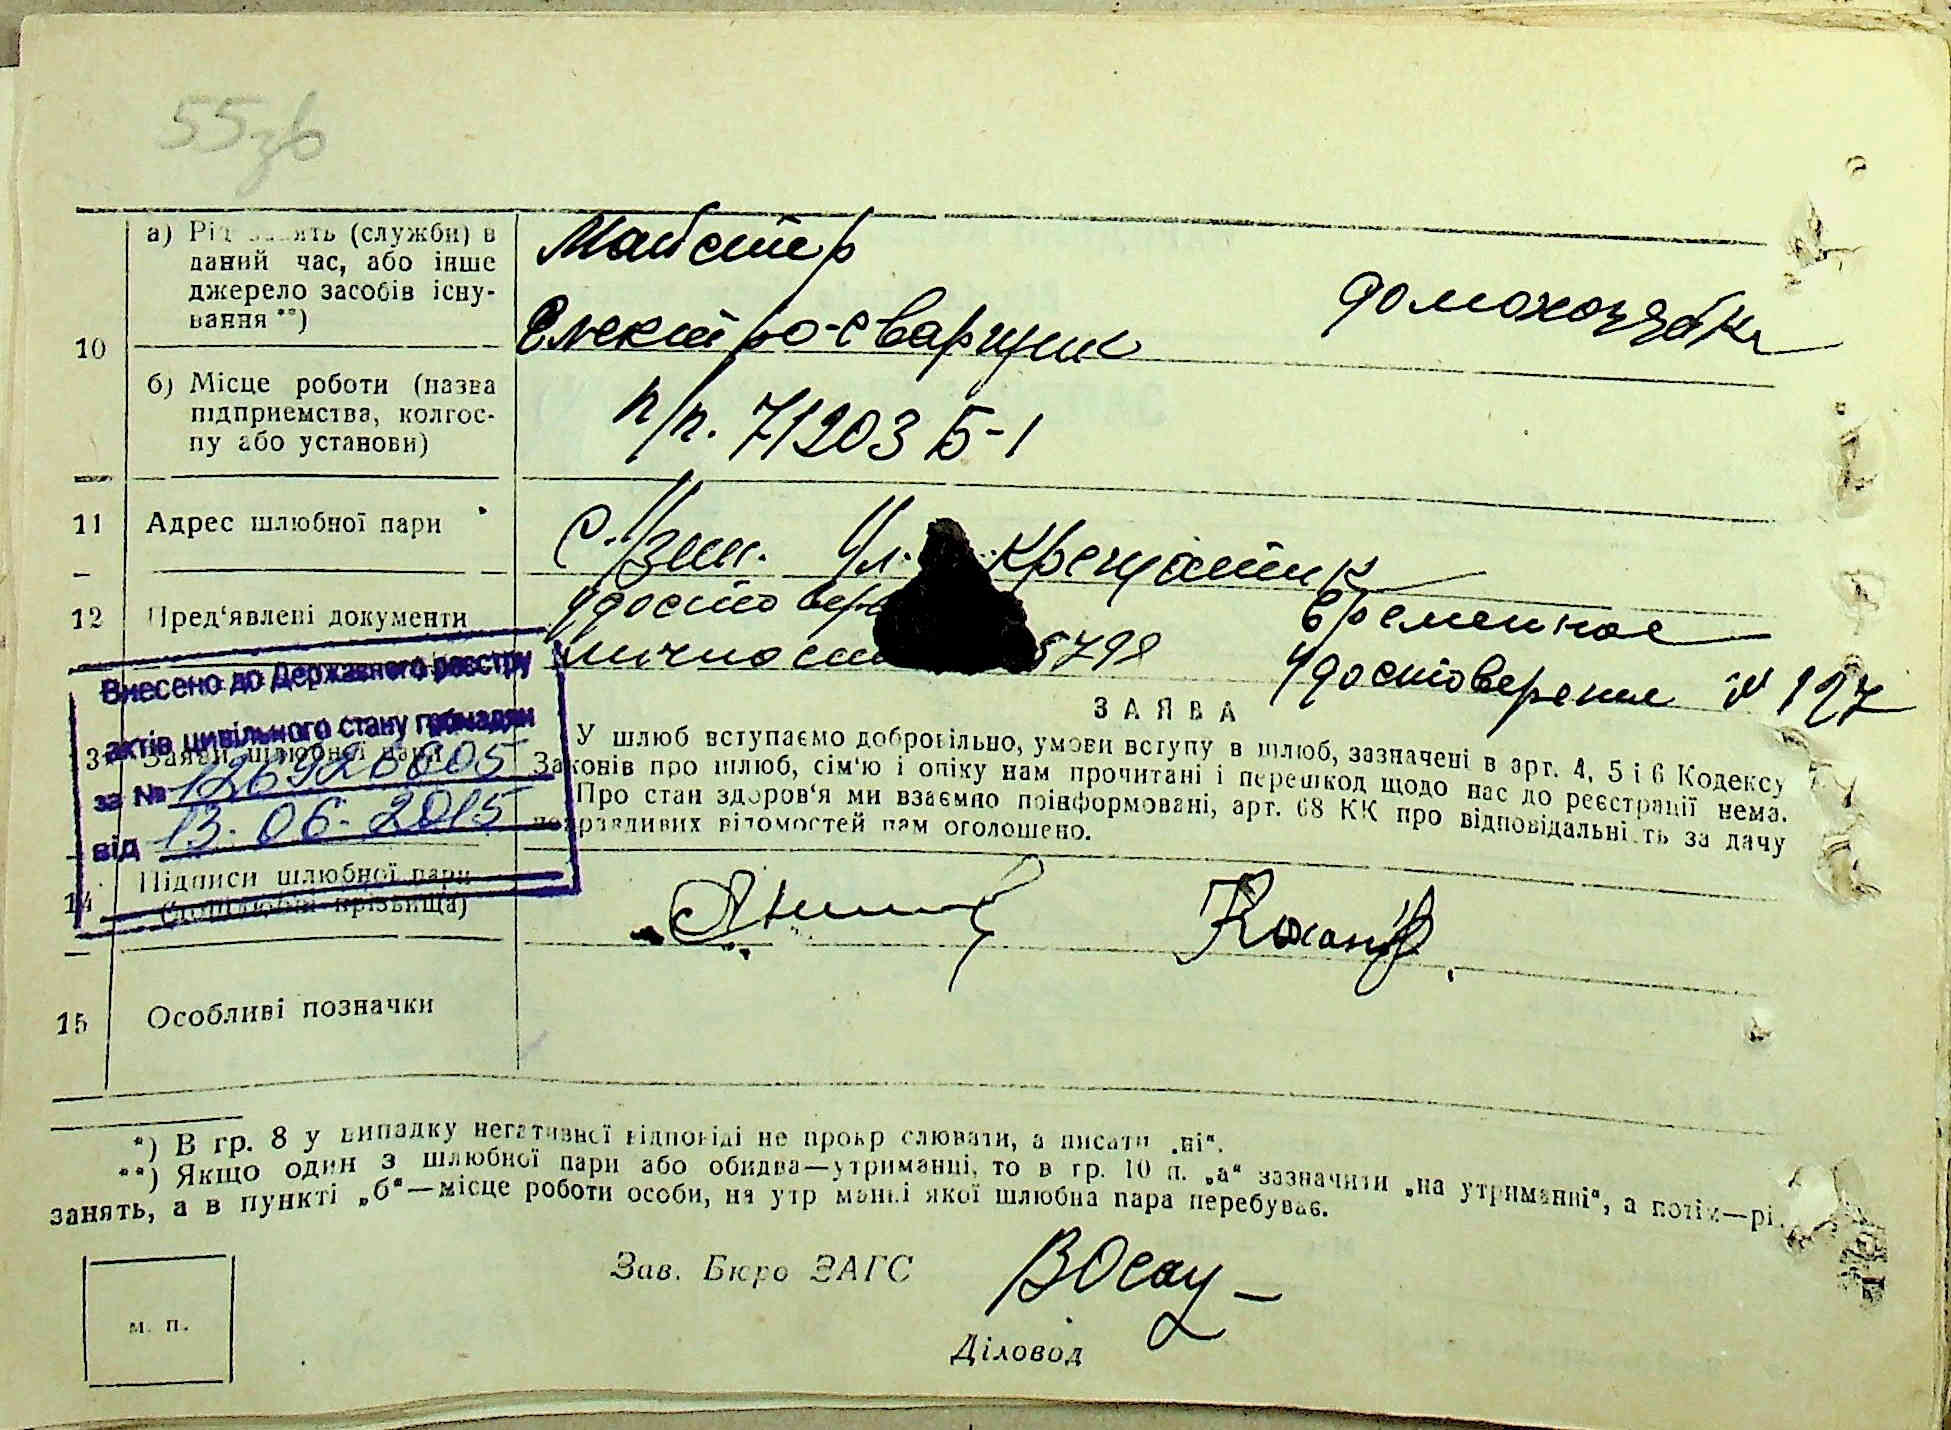 55зв
10
а) Рід занять (служби) в
даний час, або інше
джерело засобів існу-
вання **)
Майстер
Електро-сварщик
домохозяйка
б) Місце роботи (назва
підприємства, колгос-
пу або установи)
п/п. 71203 Б-1
11 Адрес шлюбної пари
с. Узин. Ул. Крещатик
12 Пред'явлені документи
удостовер
личност 8798
временное
удостоверение № 127
Внесено до Державного реєстру
актів цивільного стану громадян
за № 126926005
від 13.06.2015
Заяви шлюбної пари
ЗАЯВА
У шлюб вступаємо добровільно, умови вступу в шлюб, зазначені в арт. 4, 5 і 6 Кодексу
Законів про шлюб, сім'ю і опіку нам прочитані і перешкод щодо нас до реєстрації нема.
Про стан здоров'я ми взаємно поінформовані, арт. 68 КК про відповідальність за дачу
неправдивих відомостей нам оголошено.
14 Підписи шлюбної пари
(дошлюбні прізвища)
15 Особливі позначки
*) В гр. 8 у випадку негативної відповіді не прокр слювати, а писати „ні“.
**) Якщо один з шлюбної пари або обидва—утриманці, то в гр. 10 п. „а“ зазначити „на утриманні“, а потім—рі
занять, а в пункті „б“—місце роботи особи, на утр манні якої шлюбна пара перебуває.
Зав. Бюро ЗАГС
Діловод
м. п.